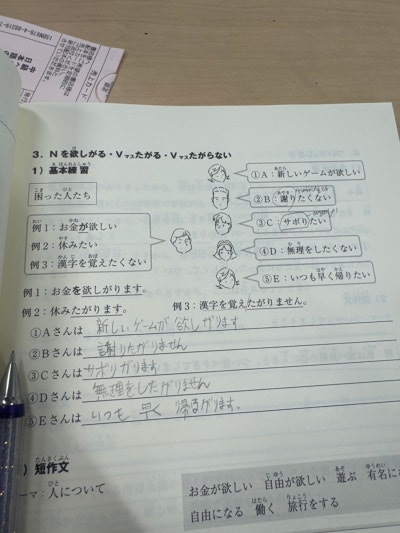 3. Nを欲しがる・Vマスたがる・Vマスたがらない
1)基本練習
困った人たち
例1：お金が欲しい
例2：休みたい
例3：漢字を覚えたくない
①A：新しいゲームが欲しい
②B：謝りたくない
③C：サボりたい
④D：無理をしたくない
⑤E：いつも早く帰りたい
例1：お金を欲しがります。
例2：休みたがります。 例3：漢字を覚えたがりません。
①Aさんは 新しいゲームが欲しがります
②Bさんは 謝りたがりません
③Cさんは サボりがります
④Dさんは 無理をしたがりません
⑤Eさんは いつも 早く 帰るがります。
)短作文
ーマ：人について
お金が欲しい 自由が欲しい 遊ぶ 有名に
自由になる 働く 旅行をする